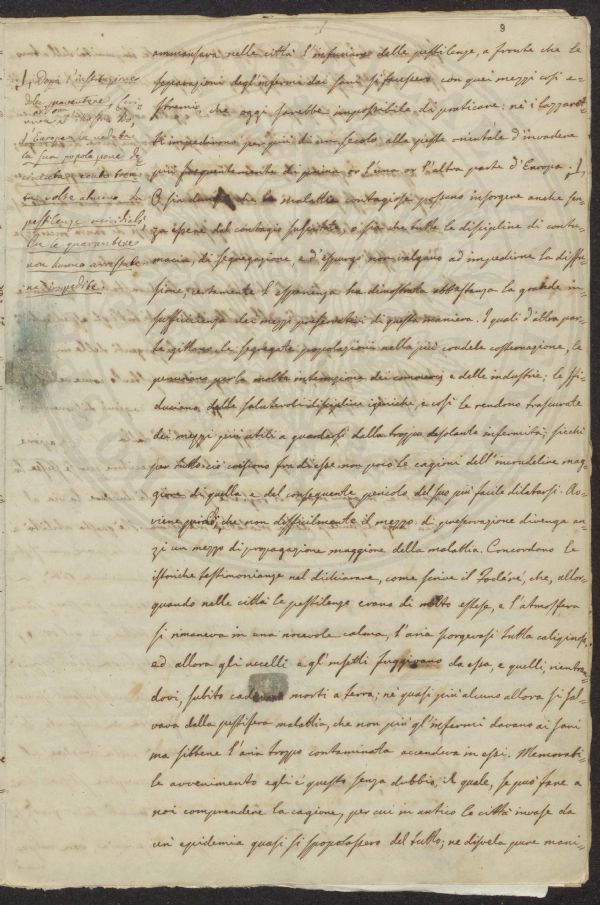 9
ammansare nelle città l'infuriare delle pestilenze, a fronte che le
separazioni degl'infermi dai sani si facessero con quei mezzi così e-
stremi, che oggi sarebbe impossibile di praticare: nè i lazzaret-
ti impedirono per più di un secolo alla peste orientale d'invadere
più frequentemente di prima or l'una or l'altra parte d'Europa.
O sia dunque che le malattie contagiose possano insorgere anche sen-
za essere dal contagio suscitate, o sia che tutte le discipline di contu-
macia, di segregazione e d'espurgo non valgano ad impedirne la diffu-
sione, certamente l'esperienza ha dimostrata abbastanza la grande in-
sufficienza dei mezzi preservativi di questa maniera. I quali d'altra par-
te gittano le segregate popolazioni nella più crudele costernazione, le
per la molta interruzione dei commerci e delle industrie; le sfi-
duciano dalle salutevoli discipline igieniche e così le rendono trascurate
dei mezzi più utili a guardarsi dalla troppo desolante infermità; sicchè
per tutto ciò crescono fra di esse non poco le cagioni dell'incrudelire mag-
giore di quella, e del conseguente pericolo del suo più facile dilatarsi. Av-
viene perciò, che non difficilmente il mezzo di preservazione divenga an-
zi un mezzo di propagazione maggiore della malattia. Concordano le
istoriche testimonianze nel dichiarare, come scrive il Foderé, che, allor-
quando nelle città le pestilenze erano di molto estese, e l'atmosfera
si rimaneva in una nocevole calma, l'aria porgevasi tutta caliginosa,
ed allora gli uccelli e gl'insetti fuggivano da essa, e quelli, rientran-
dovi, subito cadevano morti a terra; nè quasi più alcuno allora si sal-
vava dalla pestifera malattia, che non più gl'infermi davano ai sani
ma sibbene l'aria troppo contaminata accendeva in essi. Memorabi-
le avvenimento egli è questo senza dubbio, il quale, se può fare a
noi comprendere la cagione, per cui in antico le città invase da
un'epidemia quasi si spopolassero del tutto; ne disvela pure mani-
Dopo l'instituzione
delle quarantene,
l'Europa ha veduta
la sua popolazione de-
volte almeno da
pestilenze micidiali,
che le quarantene
non hanno arrestate
nè impedite.